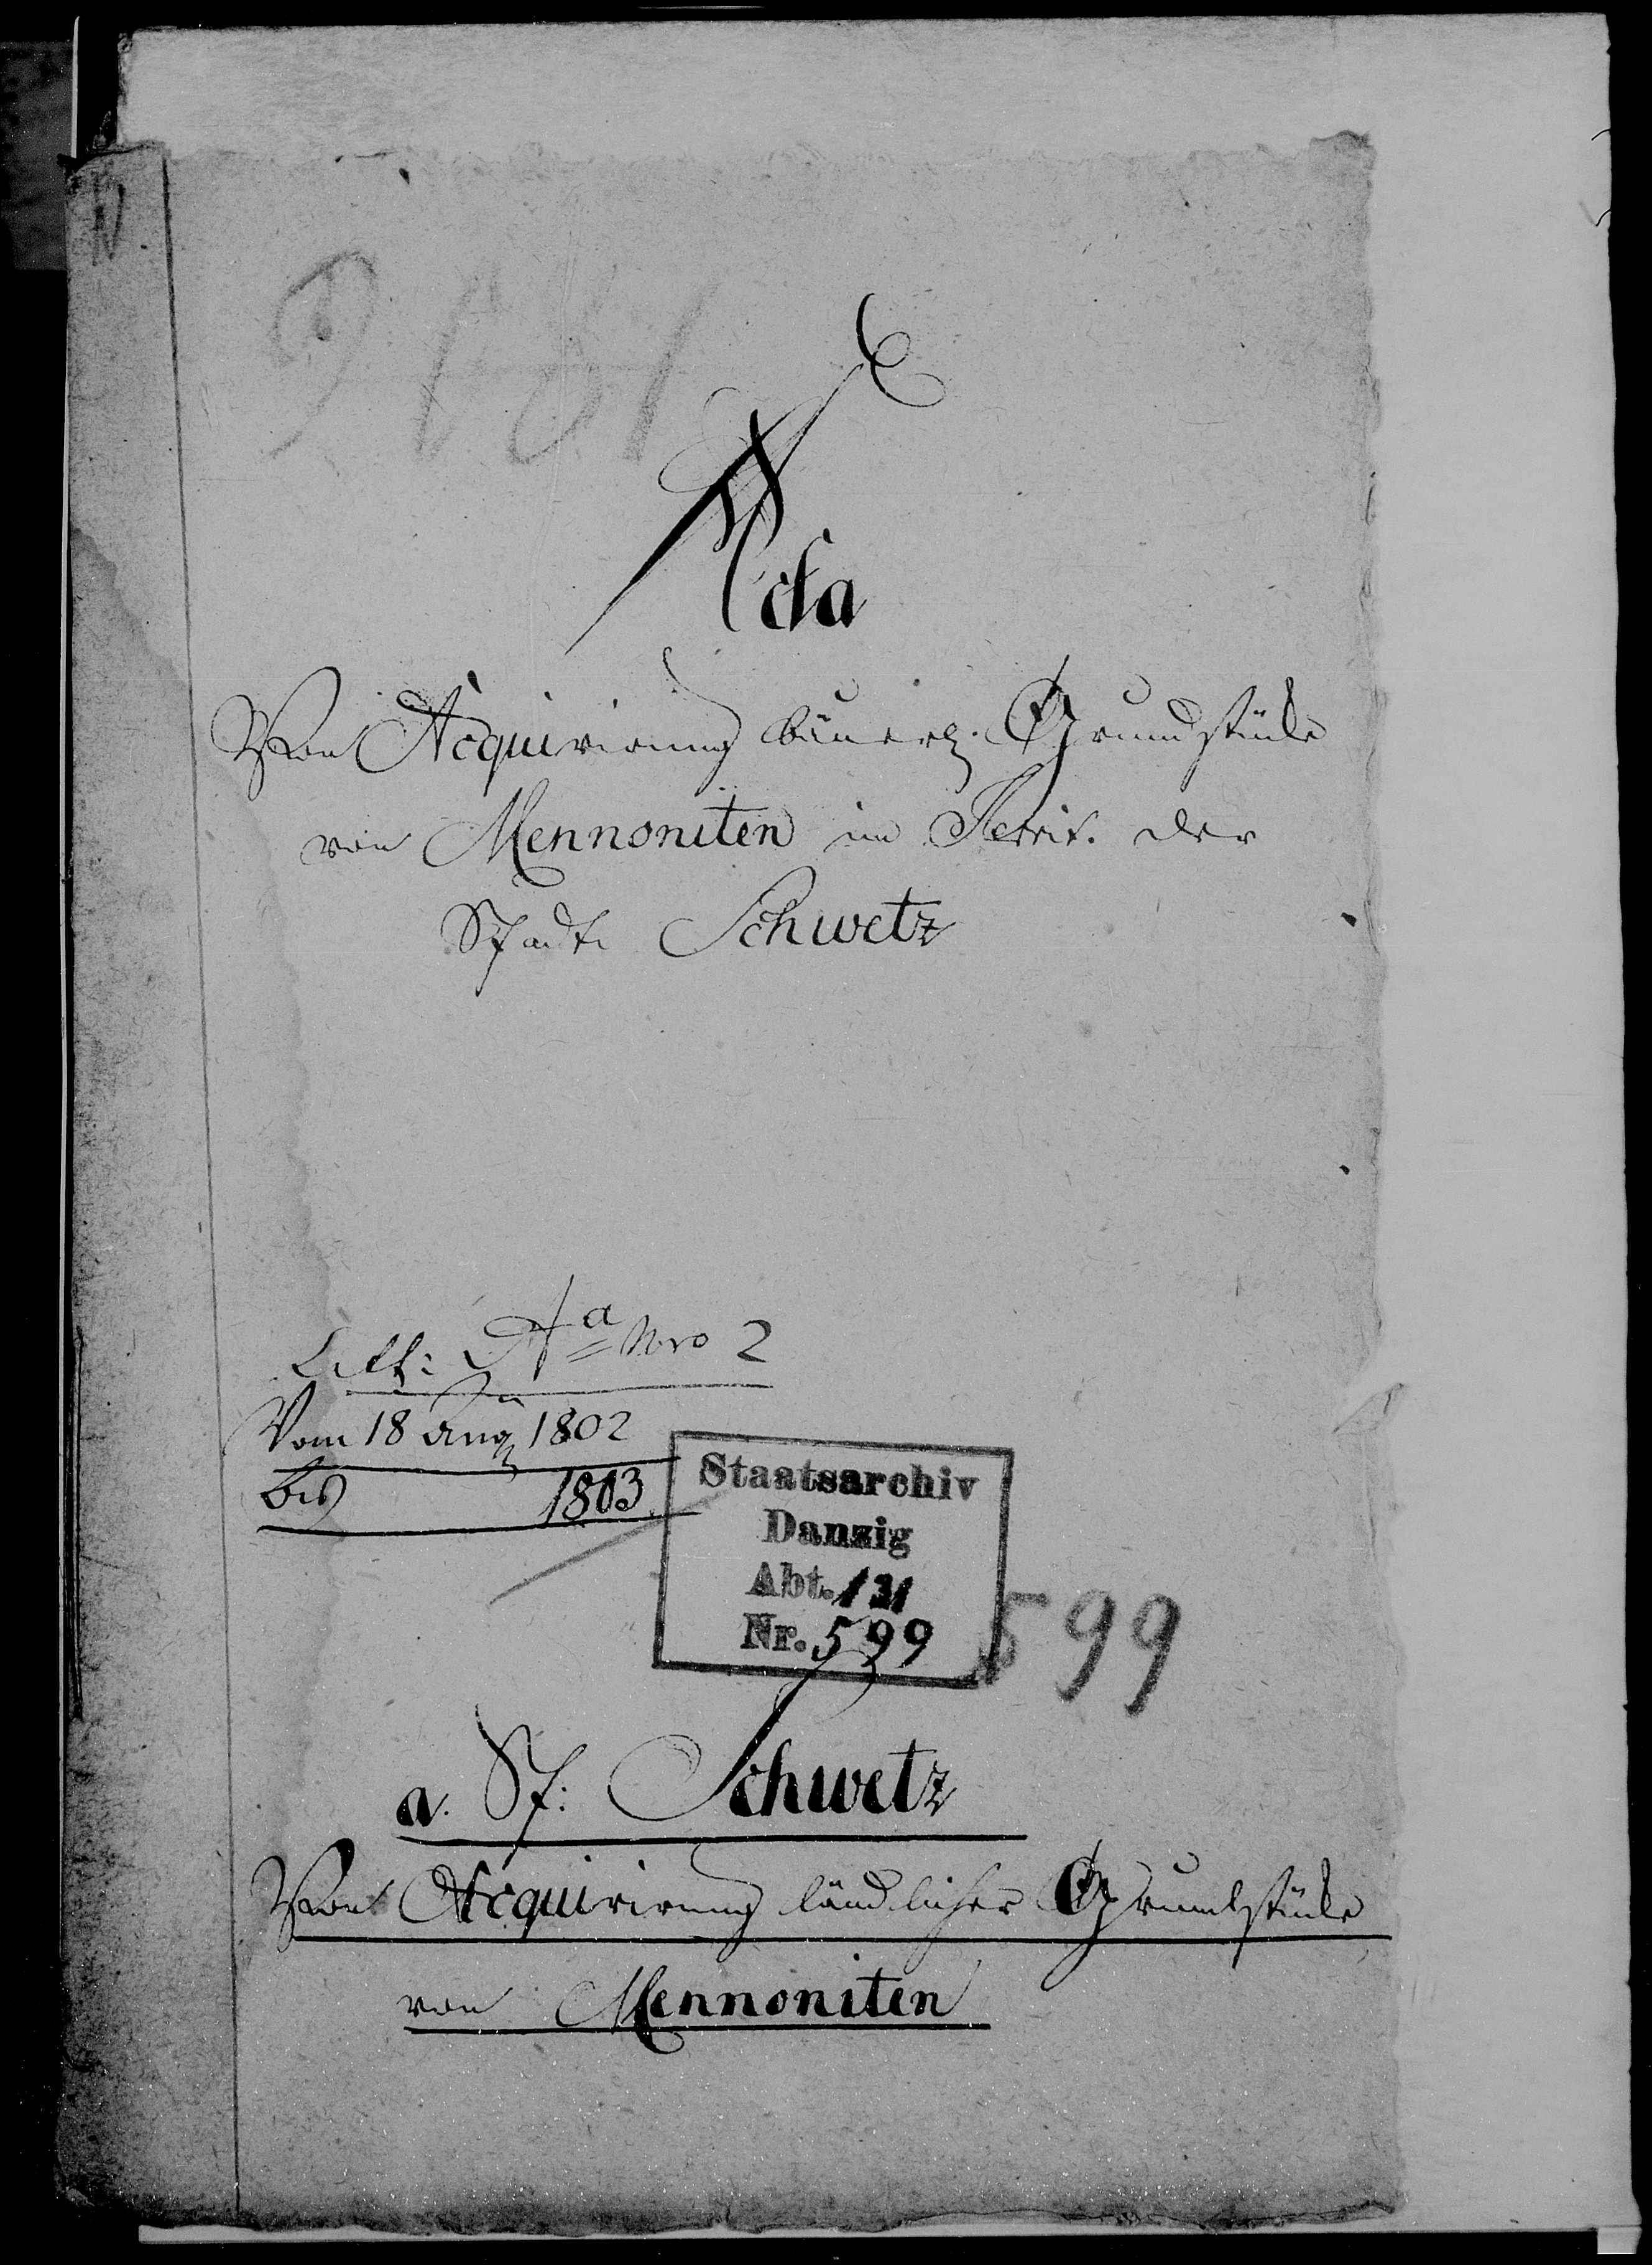 Acta
Von Acquirirung bäuerl. Grundstücke
von Mennoniten im Territ. der
Stadt Schwetz
Litt: A a Nro 2
Vom 18 Aug 1802
bis 1803
Staatsarchiv
Danzig
Abt. 131
Nr. 599
599
a. St: Schwetz
Von Acquirirung ländlicher Grundstücke
von Mennoniten